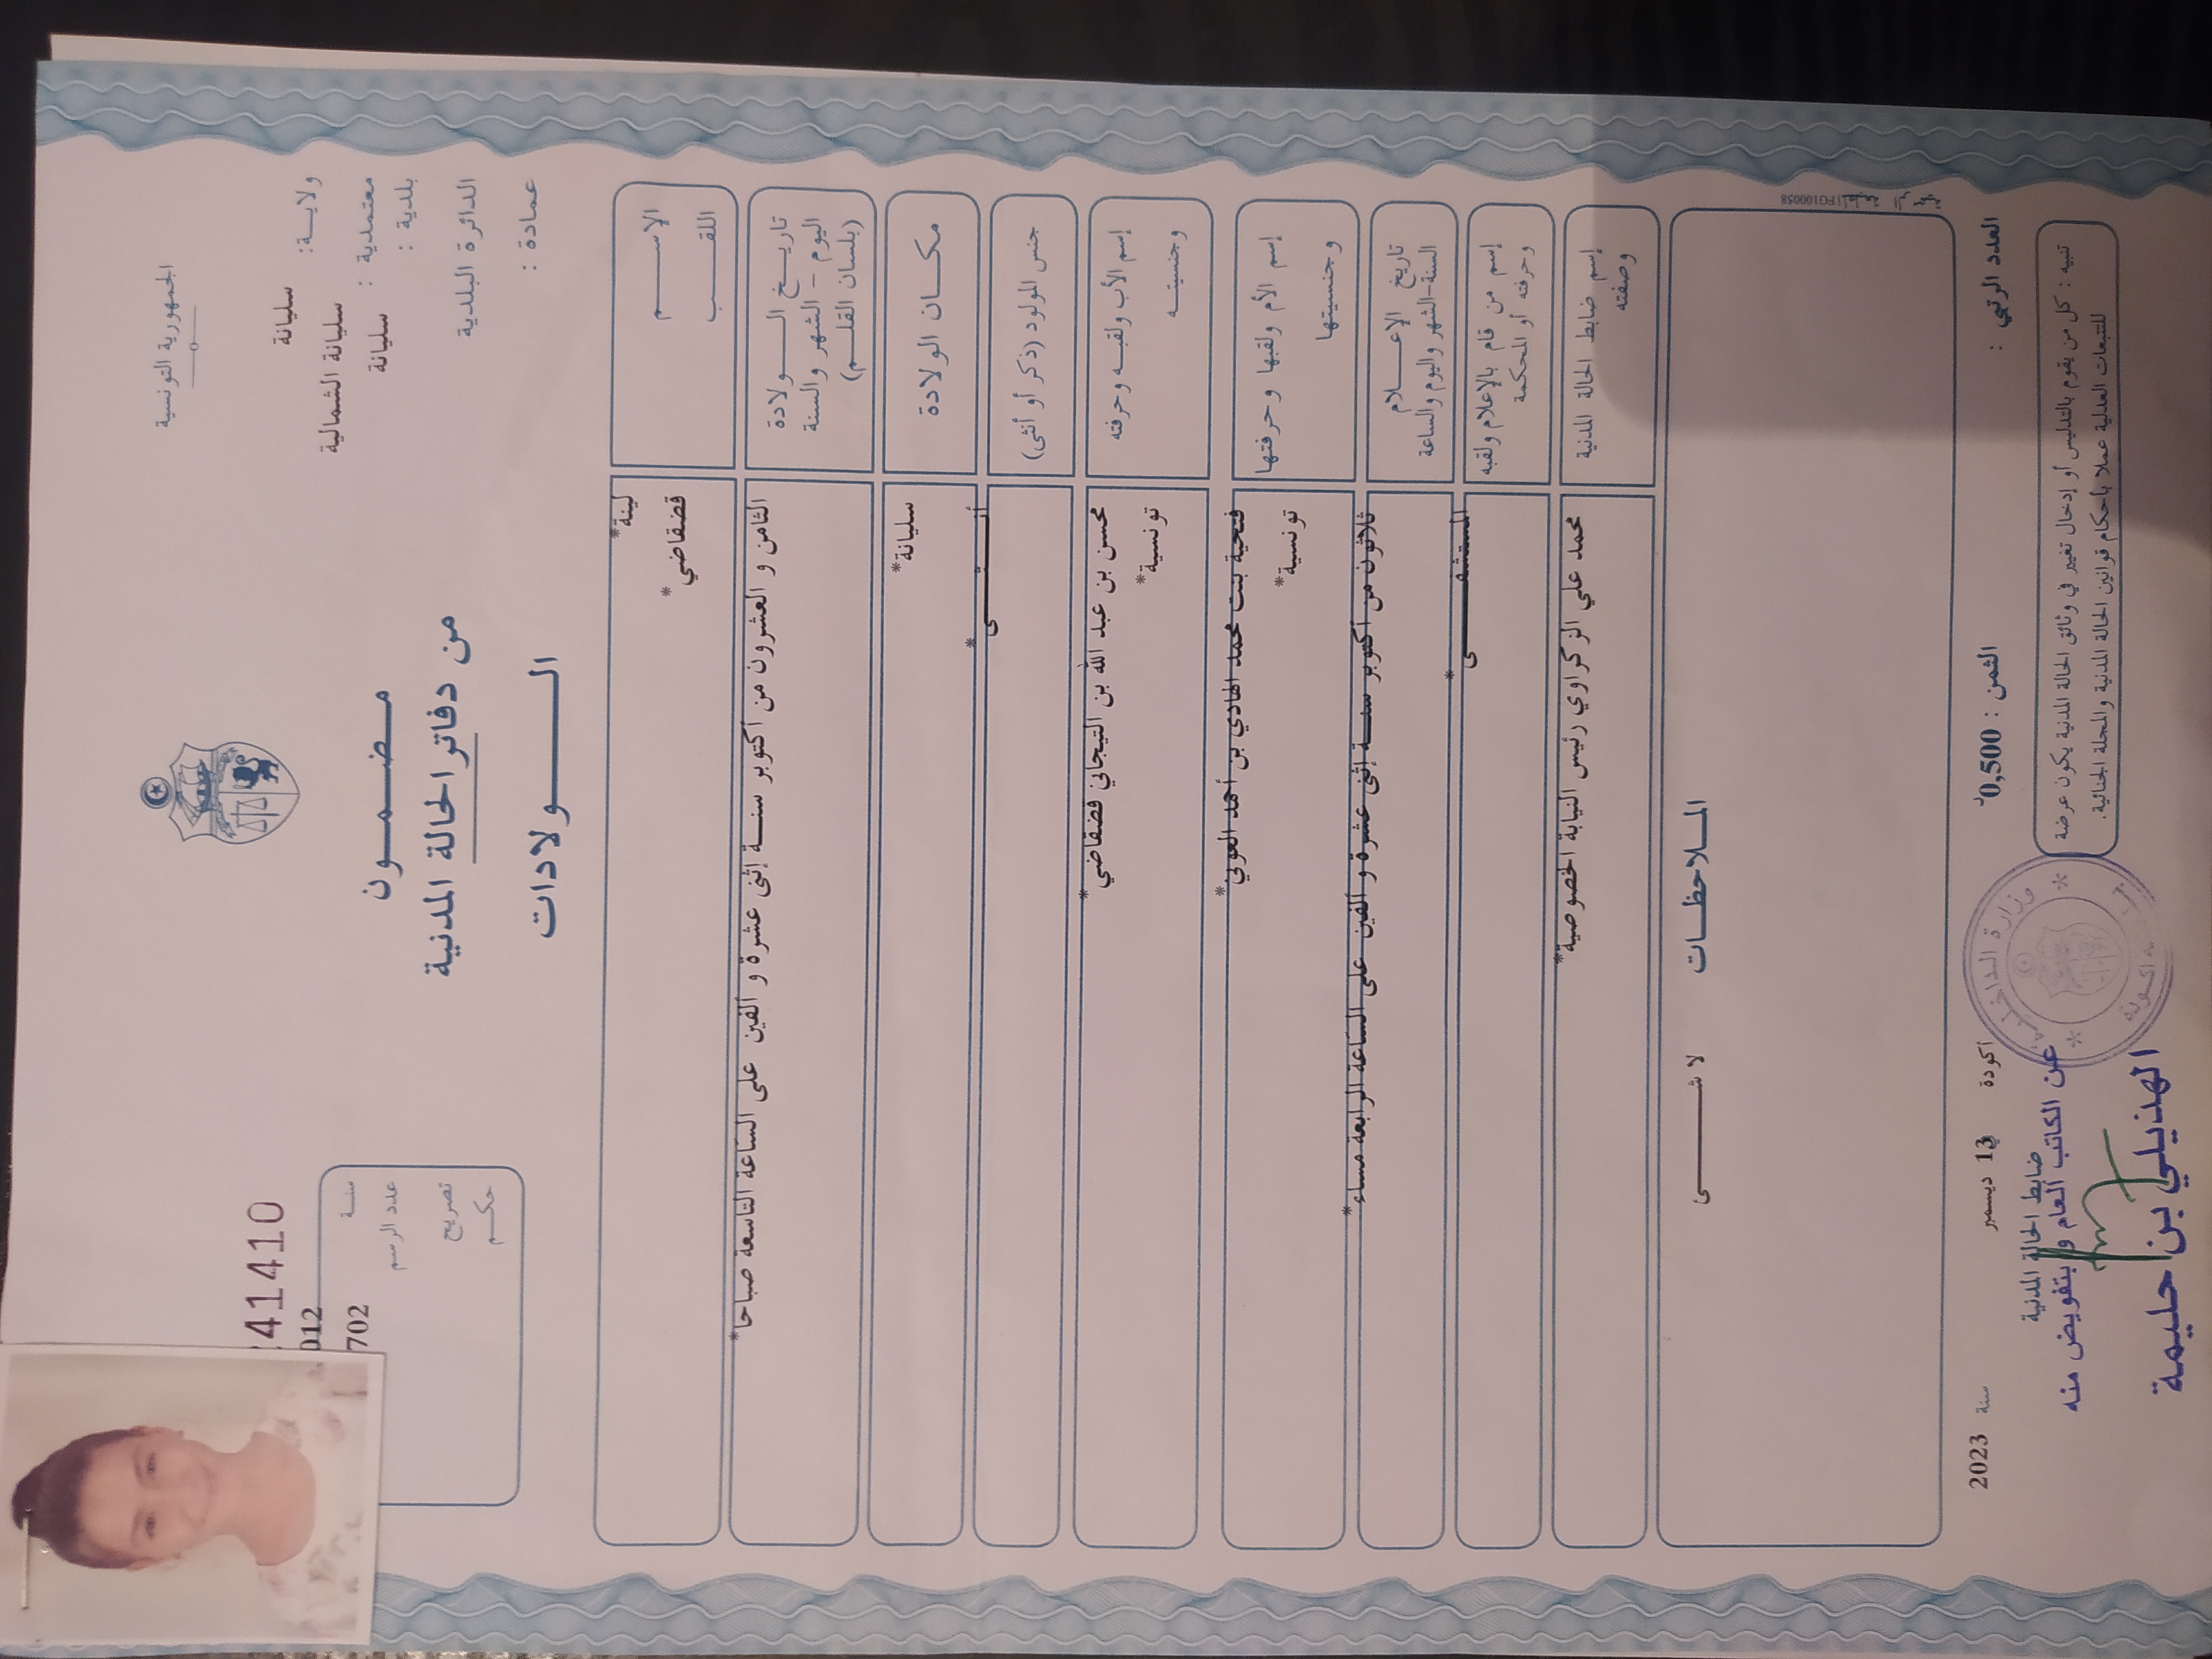 الجمهورية التونسية
ولاية: سليانة
معتمدية : سليانة الشمالية
بلدية : سليانة
الدائرة البلدية
عمادة :
مضمون
من دفاتر الحالة المدنية
الولادات
41410
سنة 012
عدد الرسم 702
تصريح
حكم
الاسم لينة*
اللقب قضقاضي*
تاريخ الولادة
اليوم - الشهر والسنة
(بلسان القلم)
الثامن و العشرون من أكتوبر سنة إثنى عشرة و ألفين على الساعة التاسعة صباحا*
مكان الولادة
سليانة*
جنس المولود (ذكر أو أنثى)
أنثى*
إسم الأب ولقبه وحرفته
وجنسيته
محسن بن عبد الله بن التيجاني قضقاضي*
تونسية*
إسم الأم ولقبها وحرفتها
وجنسيتها
فتحية بنت محمد الهادي بن أحمد العوني*
تونسية*
تاريخ الإعلام
السنة-الشهر واليوم والساعة
ثلاثون من أكتوبر سنة إثنى عشرة و ألفين على الساعة الرابعة مساء*
إسم من قام بالإعلام ولقبه
وحرفته أو المحكمة
المستشفى*
إسم ضابط الحالة المدنية
وصفته
محمد علي الزكراوي رئيس النيابة الخصوصية*
الملاحظات
لا شئ
FG100058
العدد الرتبي :
الثمن : 0,500د
أكودة في 13 ديسمبر سنة 2023
ضابط الحالة المدنية
تنبيه : كل من يقوم بالتدليس أو إدخال تغيير في وثائق الحالة المدنية يكون عرضة
للتتبعات العدلية عملا بأحكام قوانين الحالة المدنية والمجلة الجنائية.
وزارة الداخلية
أكودة
عن الكاتب العام و بتفويض منه
الهذيلي بن احليمة